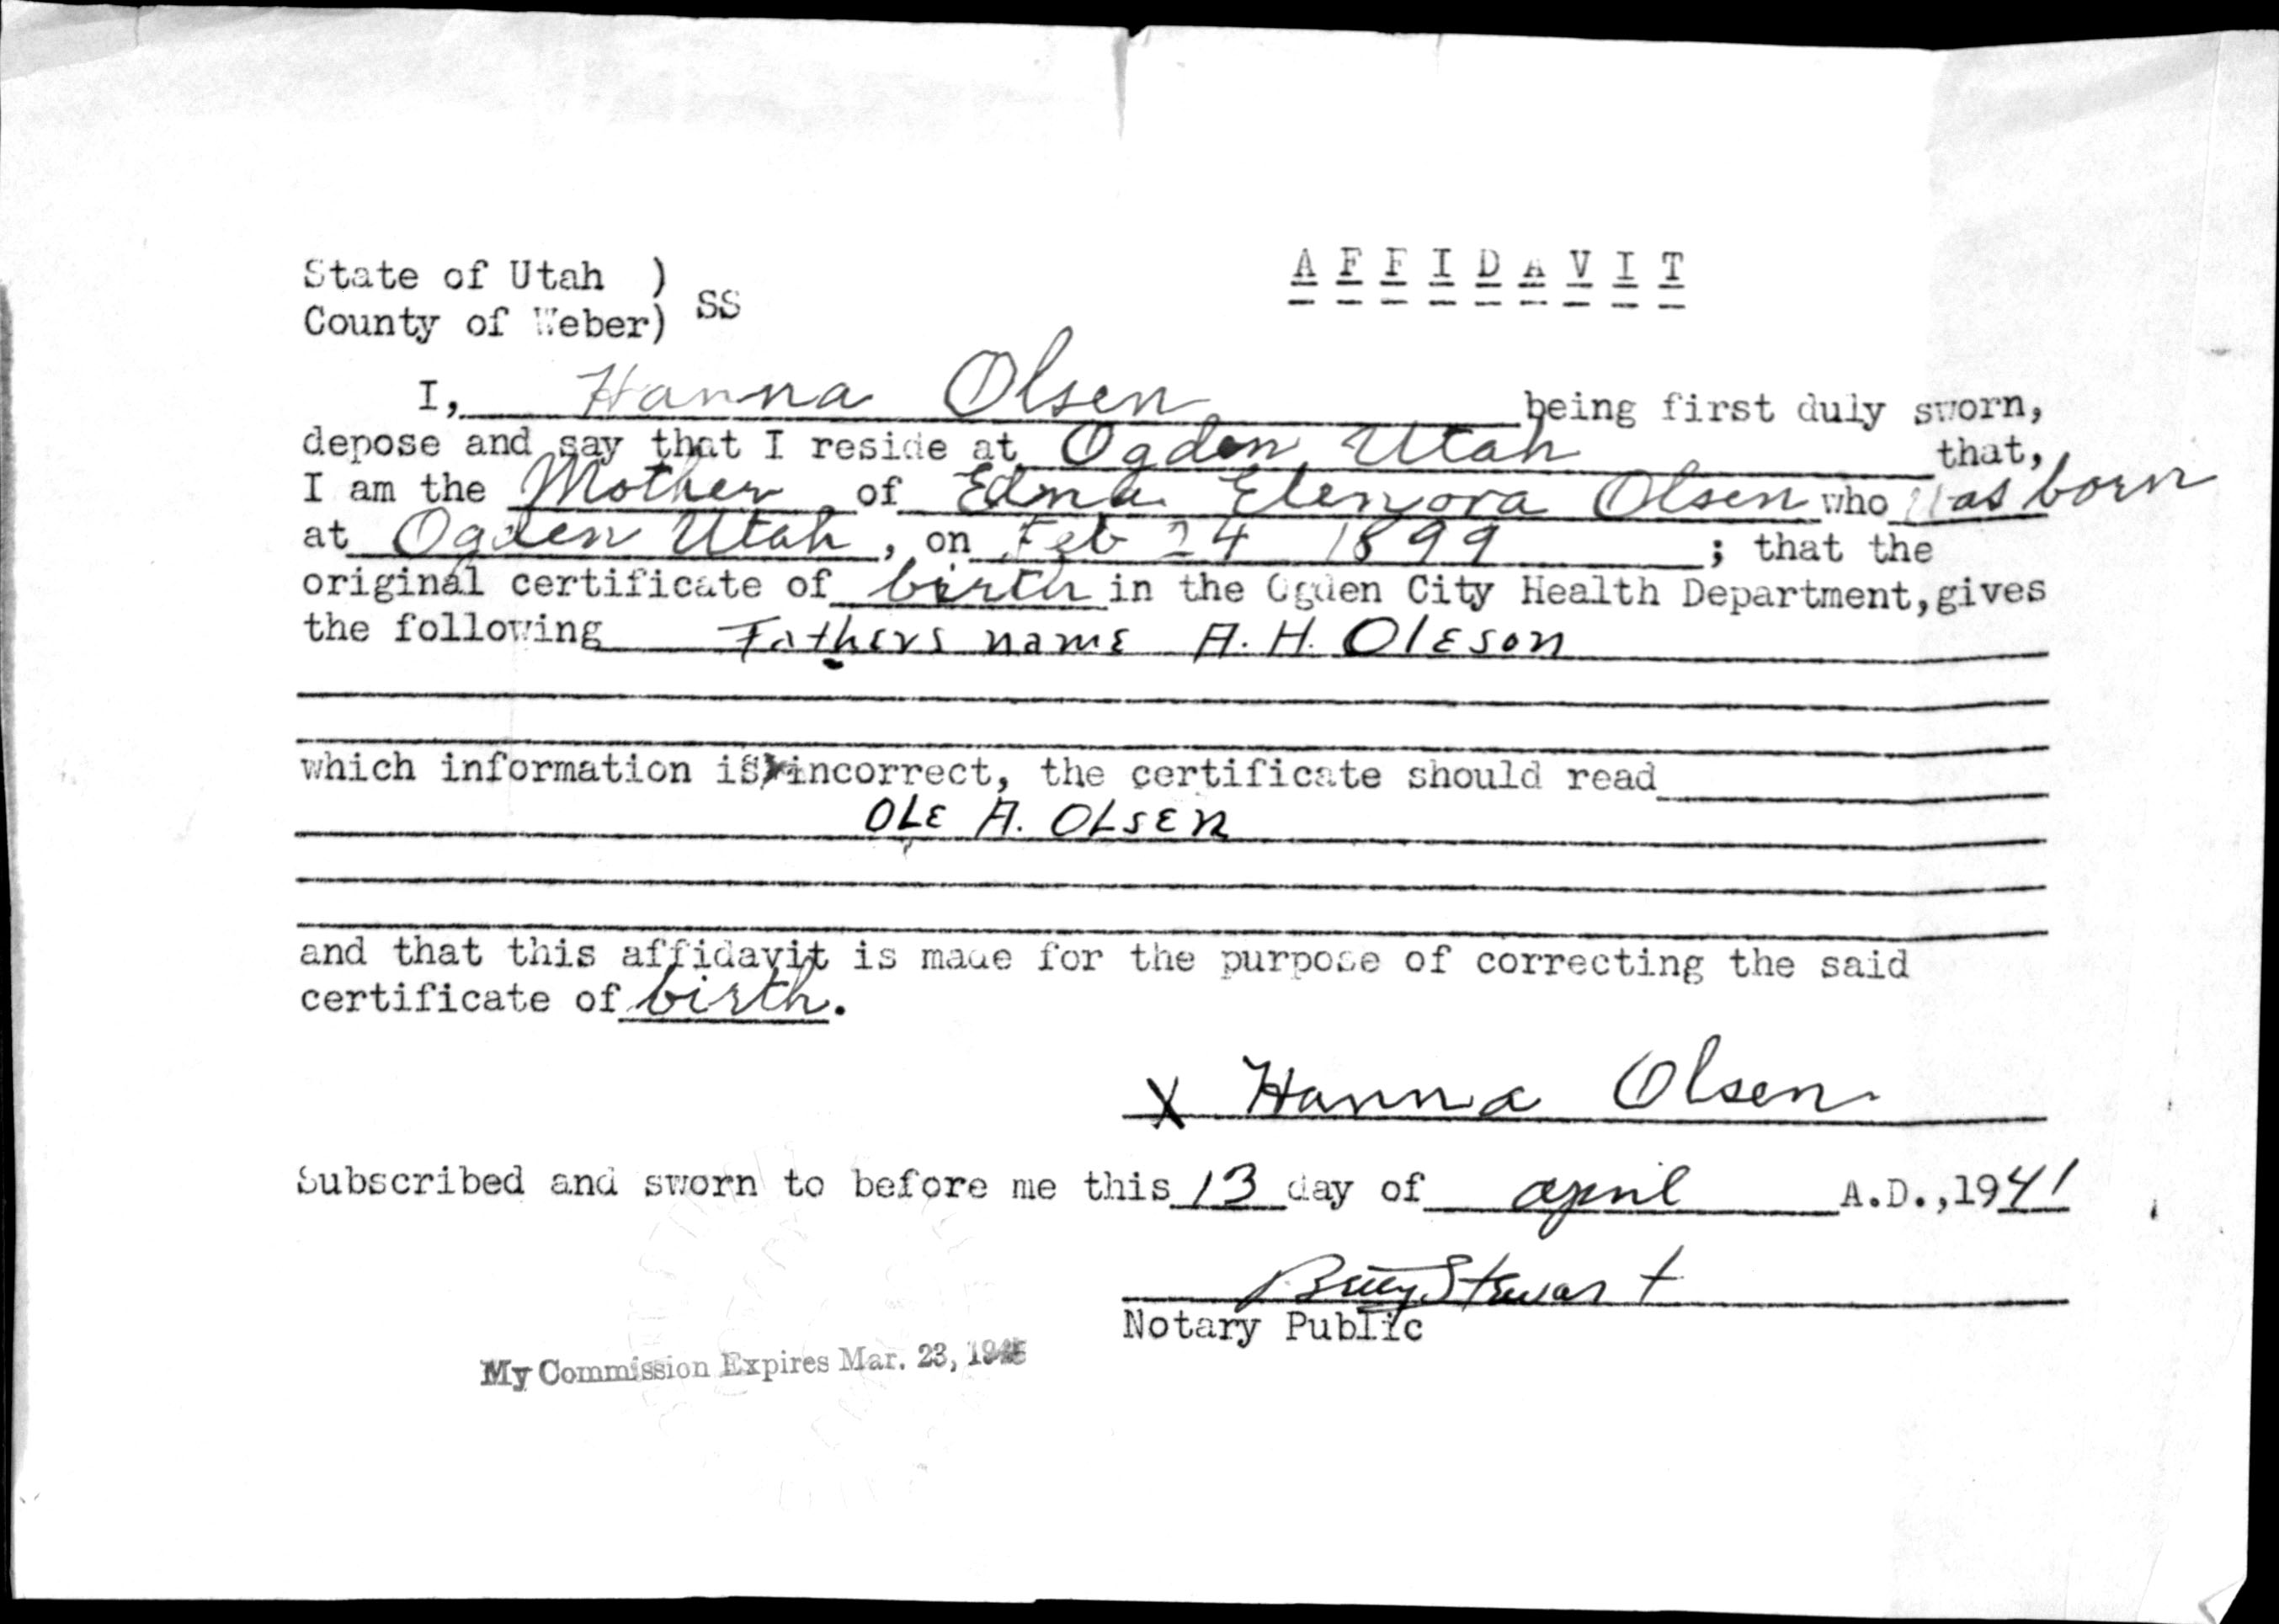 State of Utah )
County of Weber) SS
A F F I D A V I T
I, Hanna Olsen being first duly sworn,
depose and say that I reside at Ogden Utah that,
I am the Mother of Edna Elenora Olsen who was born
at Ogden Utah, on Feb 24 1899; that the
original certificate of birth in the Ogden City Health Department, gives
the following Fathers name A. H. Oleson
which information is incorrect, the certificate should read
OLE A. OLSEN
and that this affidavit is made for the purpose of correcting the said
certificate of birth.
X Hanna Olsen
Subscribed and sworn to before me this 13 day of april A.D., 1941
Stewart
Notary Public
My Commission Expires Mar. 23,